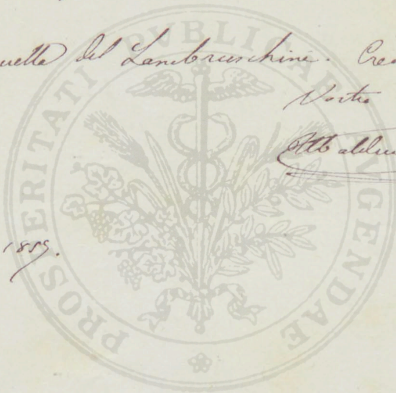 quella del Lambruschini. Cre
Vostro
1859.
PROSPERITATI PUBLICAE AUGENDAE